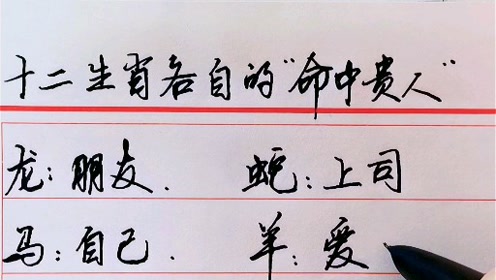 十二生肖各自的“命中贵人”
龙：朋友． 蛇：上司
马：自己． 羊：爱